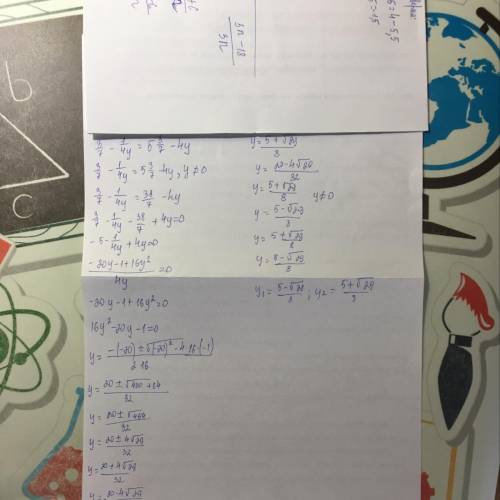 6=4-5,5
5n-18
5n
3/7 - 1/4y = 5 3/7 - 4y
3/7 - 1/4y = 5 3/7 - 4y, y≠0
3/7 - 1/4y = 38/7 - 4y
3/7 - 1/4y - 38/7 + 4y = 0
-5 - 1/4y + 4y = 0
(-20y - 1 + 16y²)/4y = 0
-20y - 1 + 16y² = 0
16y² - 20y - 1 = 0
y = (-(-20) ± √((-20)² - 4·16·(-1)))/(2·16)
y = (20 ± √(400 + 64))/32
y = (20 ± √464)/32
y = (20 ± 4√29)/32
y = (20 + 4√29)/32
y = (20 - 4√29)/32
y = (5 + √29)/8
y = (20 - 4√29)/32
y = (5 + √29)/8 y≠0
y = (5 - √29)/8
y = (5 + √29)/8
y = (5 - √29)/8
y₁ = (5 - √29)/8 ; y₂ = (5 + √29)/8
b